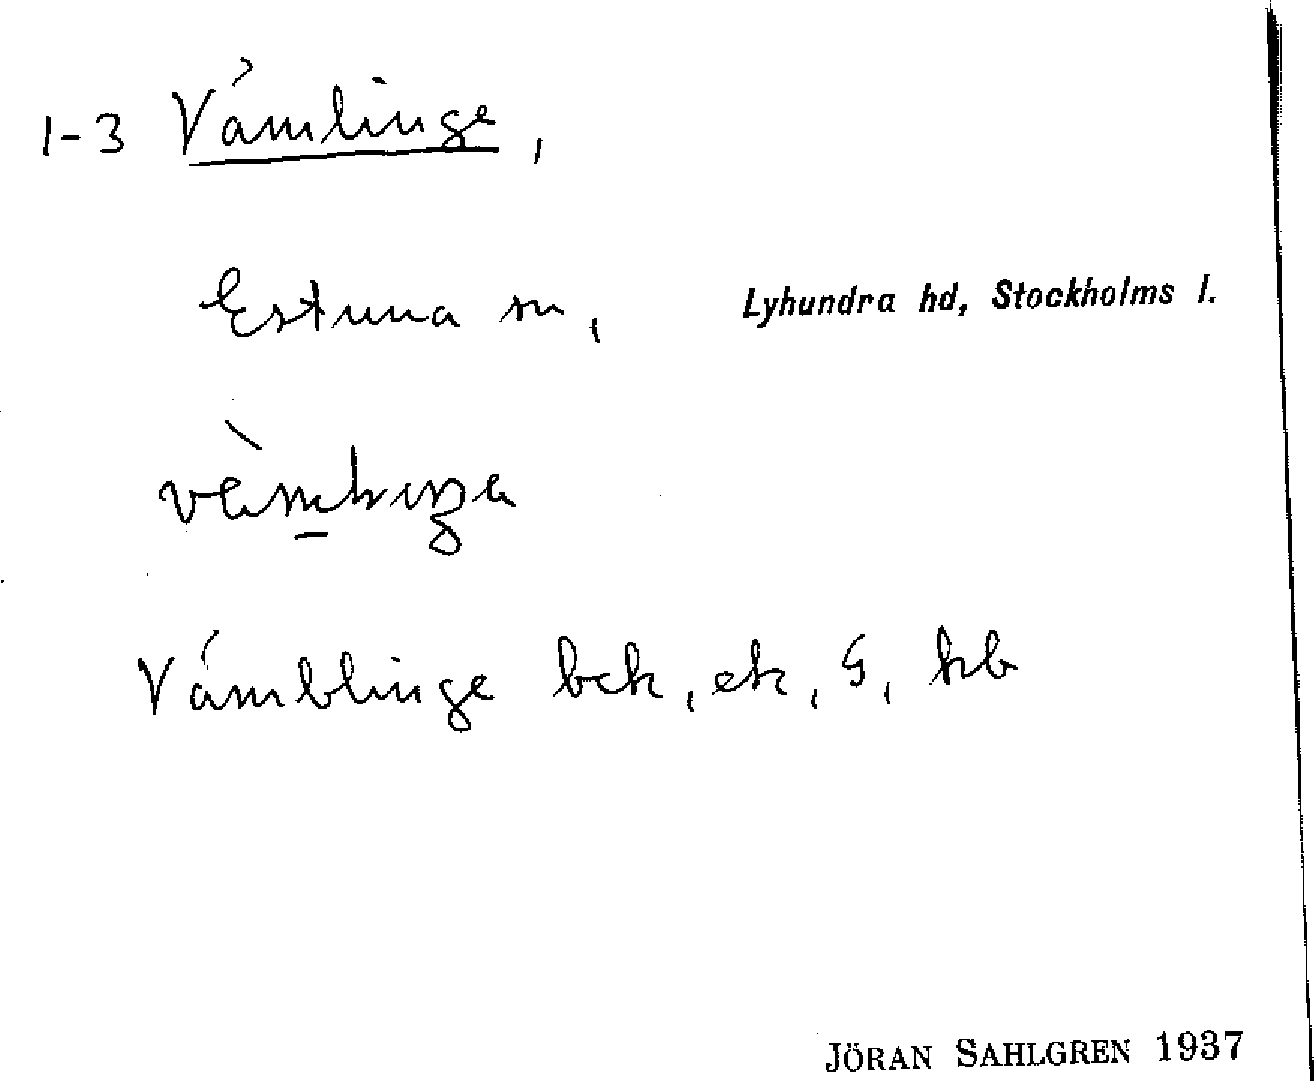 1-3 Vämlinge,
Estuna sn, Lyhundra hd, Stockholms l.
Vämblinge bck, ek, G, kb
JÖRAN SAHLGREN 1937